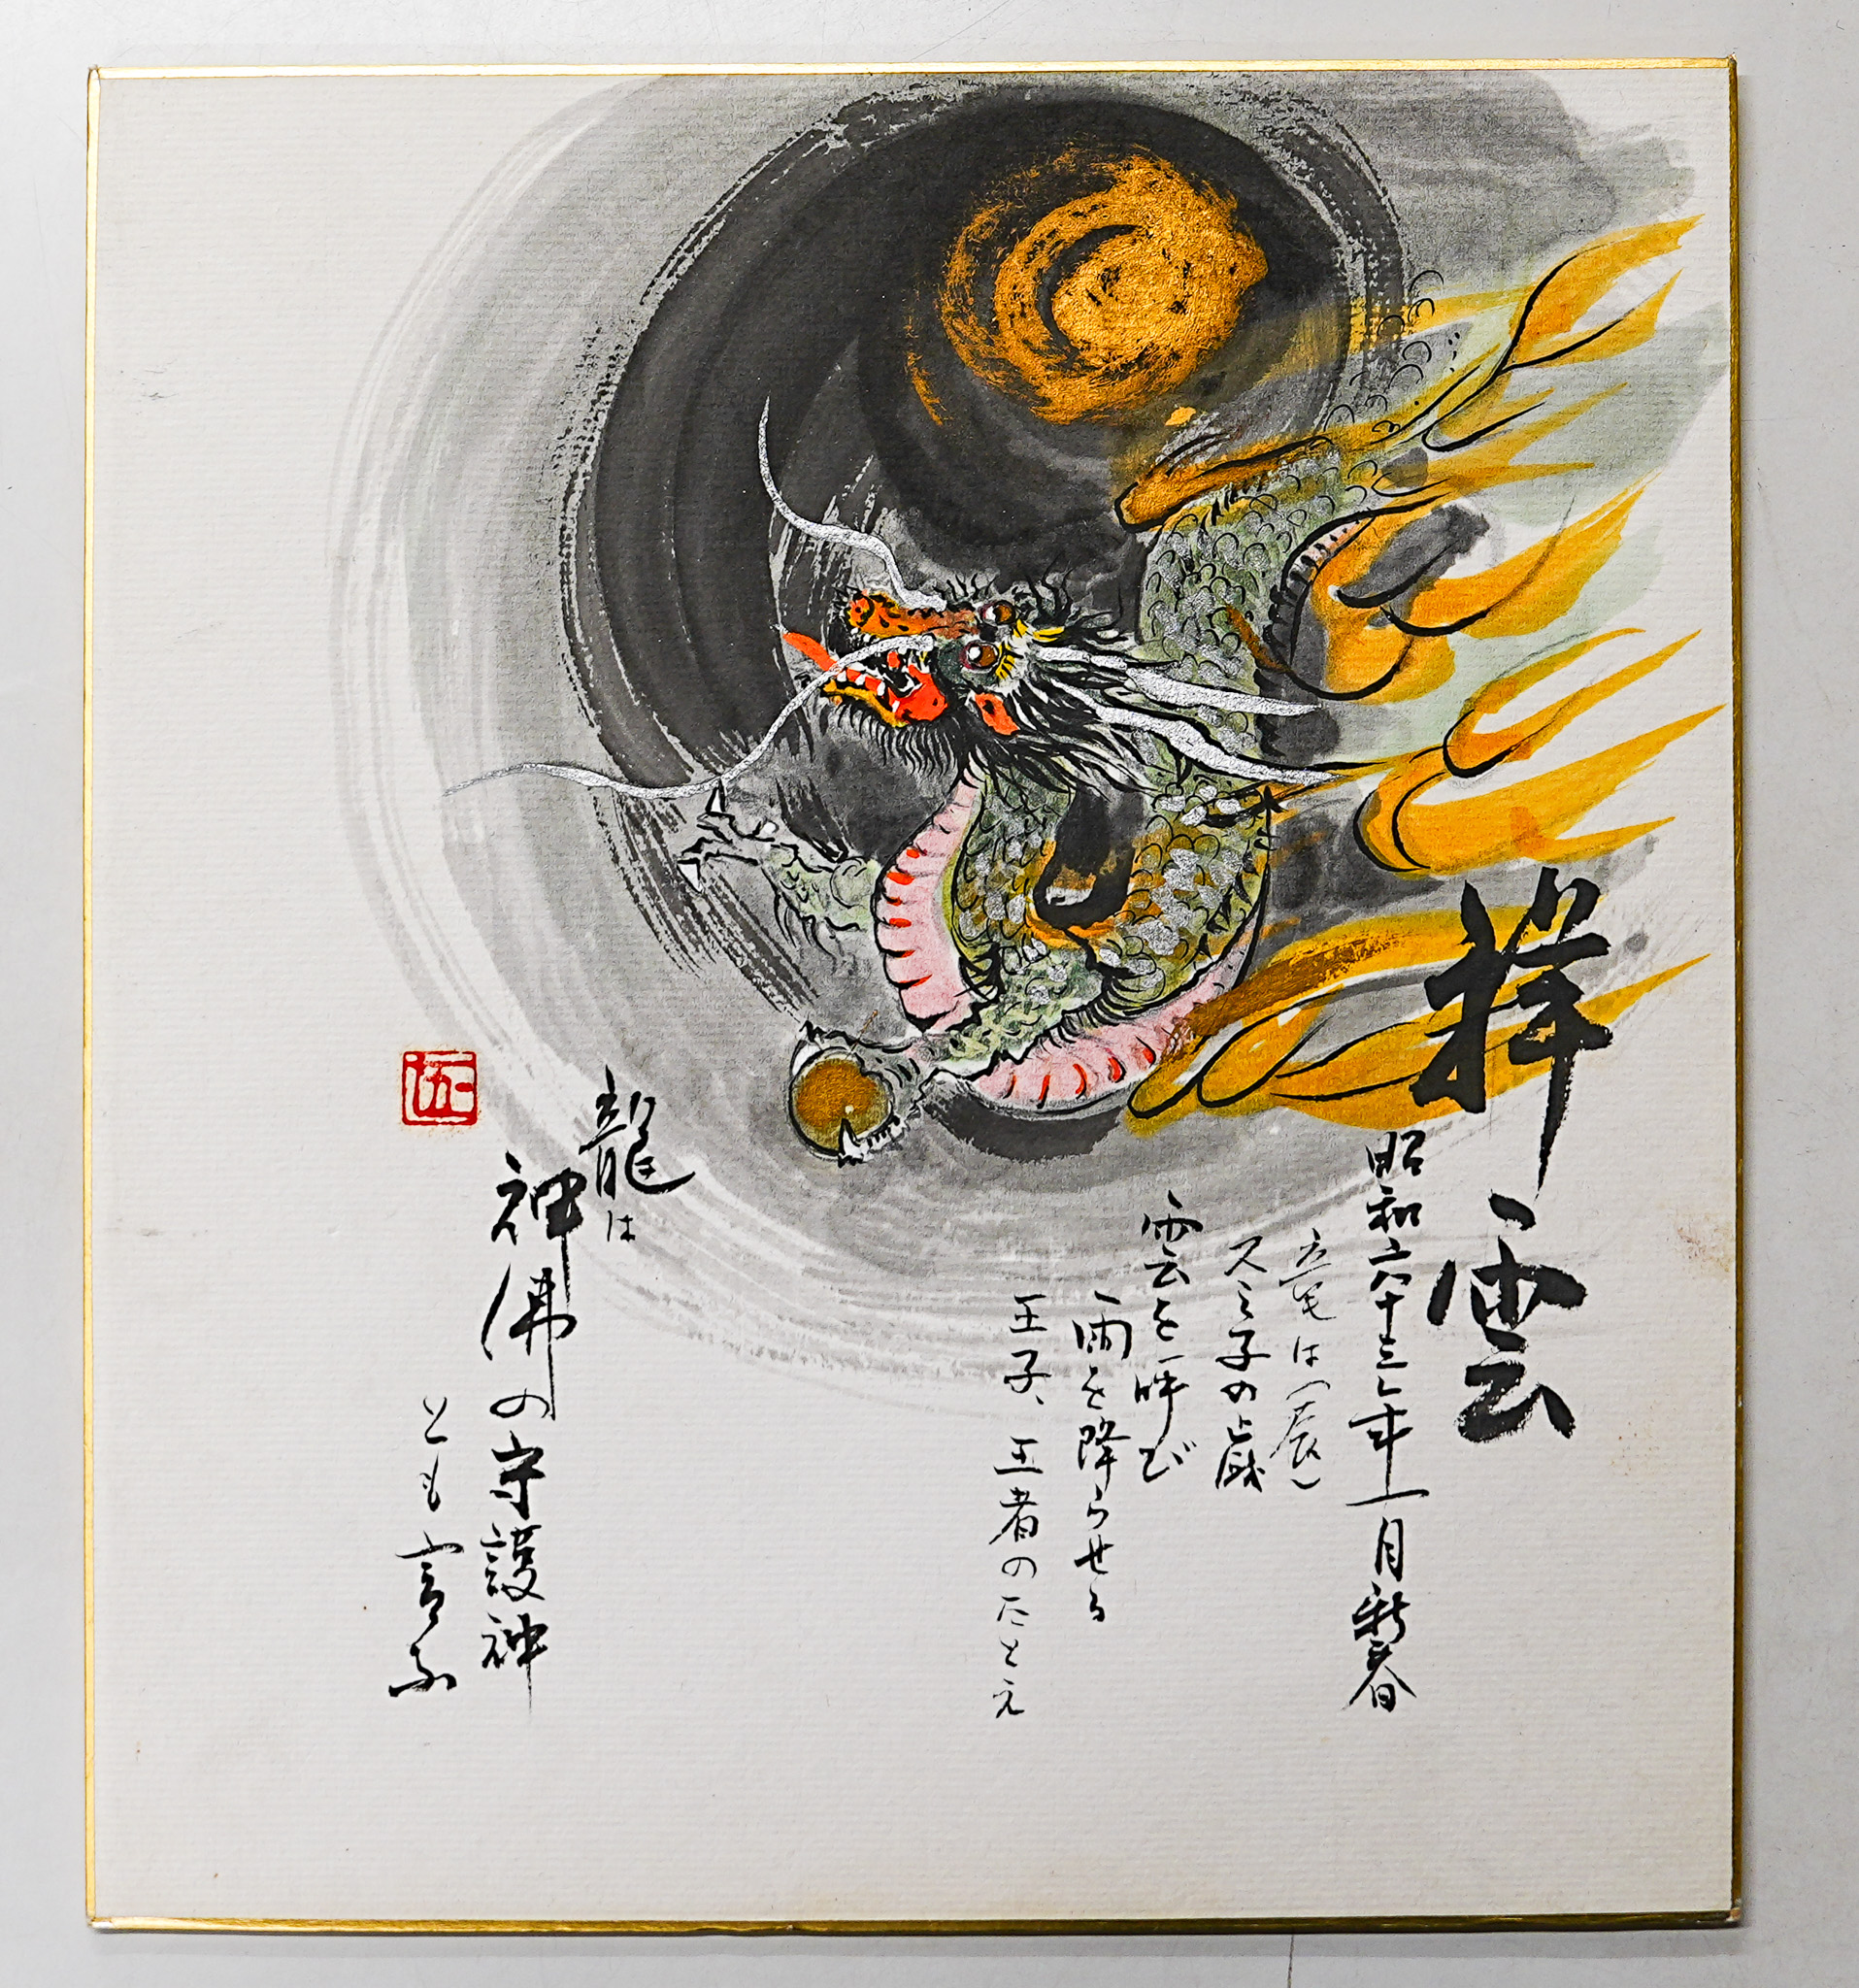 祥雲
昭和六十三年一月新春
竜は(辰)
スミ子の歳
雲を呼び
雨を降らせる
王子、王者のたとえ
龍は
神佛の守護神
とも言ふ